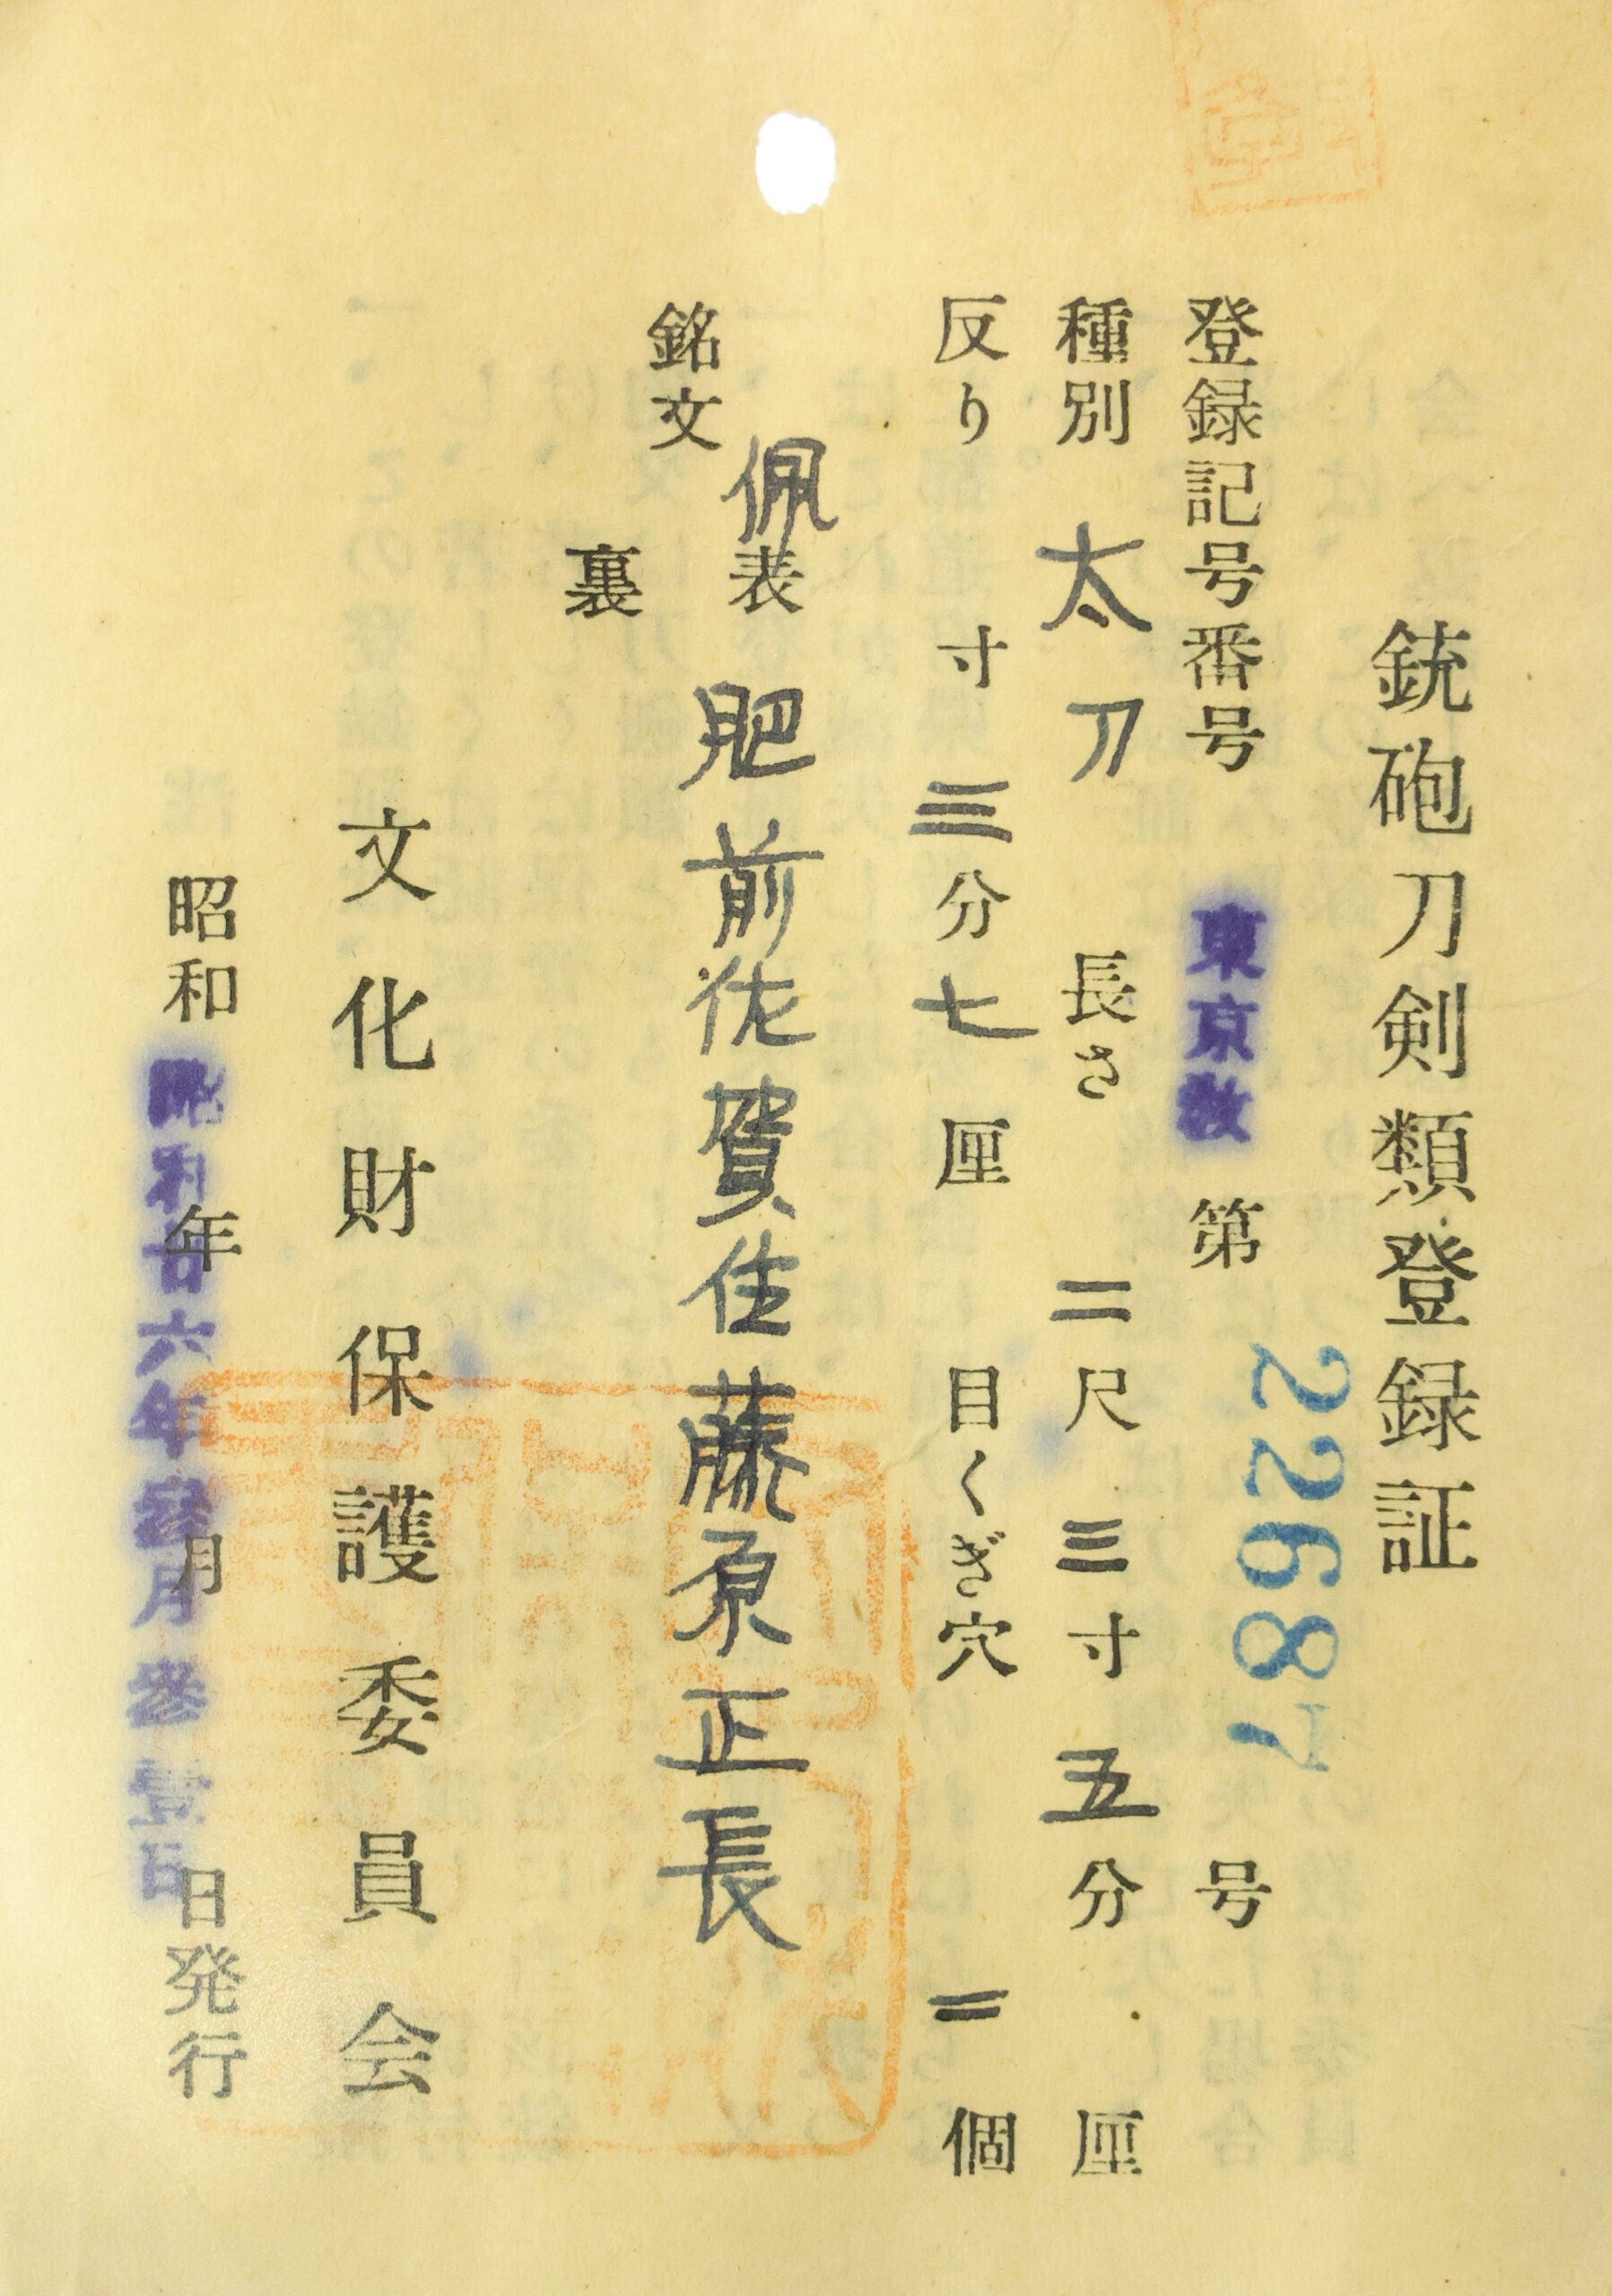 銃砲刀剣類登録証
登録記号番号 東京教 第 22687 号
種別 太刀 長さ 二尺三寸五分 厘
反り 寸三分七厘 目くぎ穴 二個
銘文 佩表 肥前佐賀住藤原正長
裏
文化財保護委員会
昭和 年 月 日発行
昭和廿六年参月参壹日